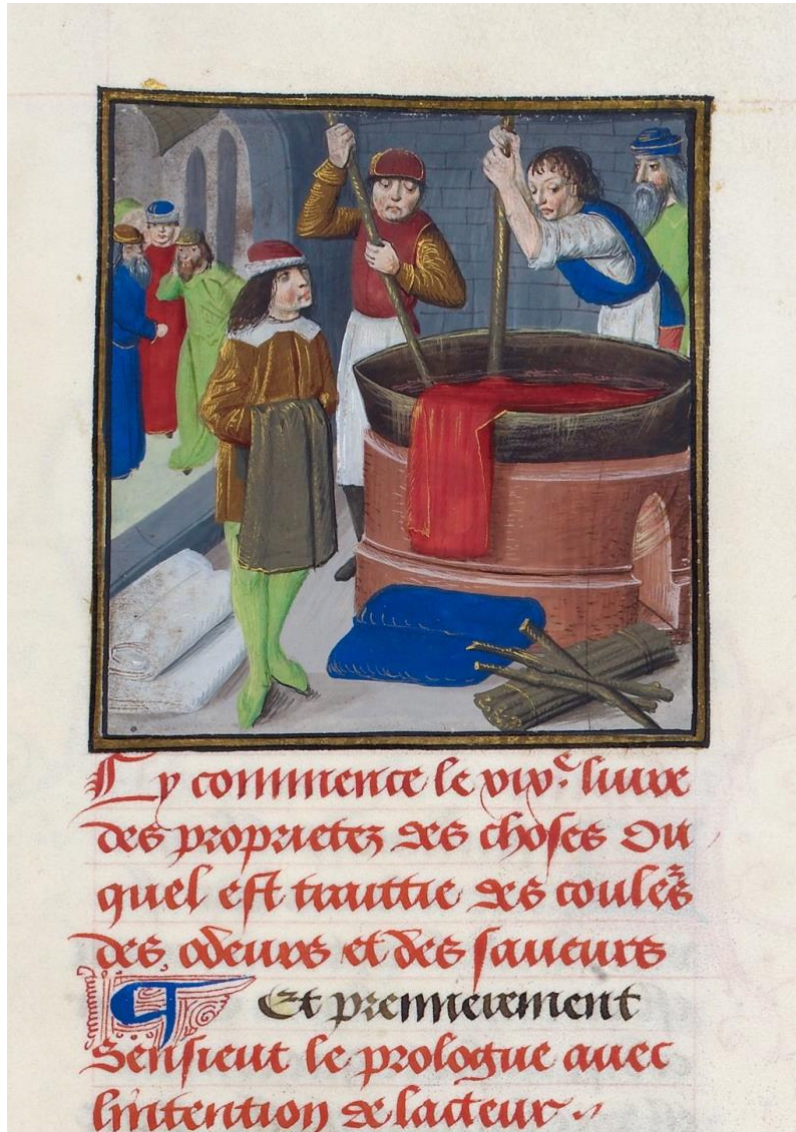 Cy commence le xixe. liure
des proprietez des choses Ou
quel est traittie des couleurs
des odeurs et des saueurs
Et premierement
Sensieut le prologue auec
lintention de lacteur.